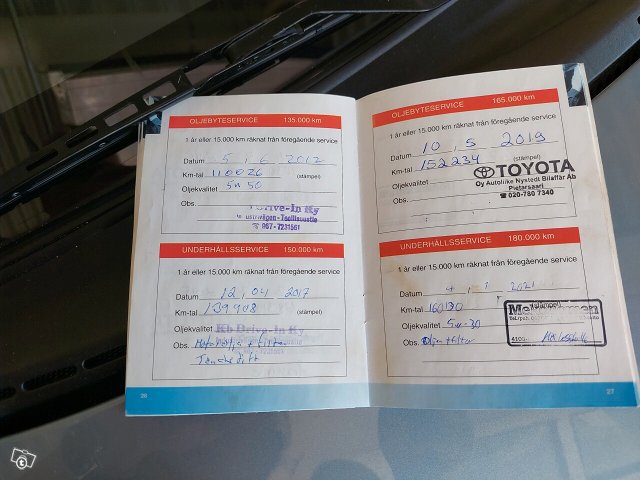 OLJEBYTESERVICE 135.000 km
1 år eller 15.000 km räknat från föregående service
Datum 5, 6 2012
Km-tal 110026
(stämpel)
Oljekvalitet 5W50
Obs. Drive-In Ky
Teollisuustie
067-7231561
UNDERHÅLLSSERVICE 150.000 km
1 år eller 15.000 km räknat från föregående service
Datum 12, 04 2017
Km-tal 139908
(stämpel)
Oljekvalitet Kb Drive-In Ky
Obs. Motorolja + filter
26
OLJEBYTESERVICE 165.000 km
1 år eller 15.000 km räknat från föregående service
Datum 10, 5 2019
Km-tal 152234
(stämpel)
Oljekvalitet TOYOTA
Oy Autoliike Nystedt Bilaffär Ab
Obs. Pietarsaari
020-780 7340
UNDERHÅLLSSERVICE 180.000 km
1 år eller 15.000 km räknat från föregående service
Datum 4, 2021
Km-tal 160130
(stämpel)
Oljekvalitet 5W-30
Obs. Oljor + filter
27